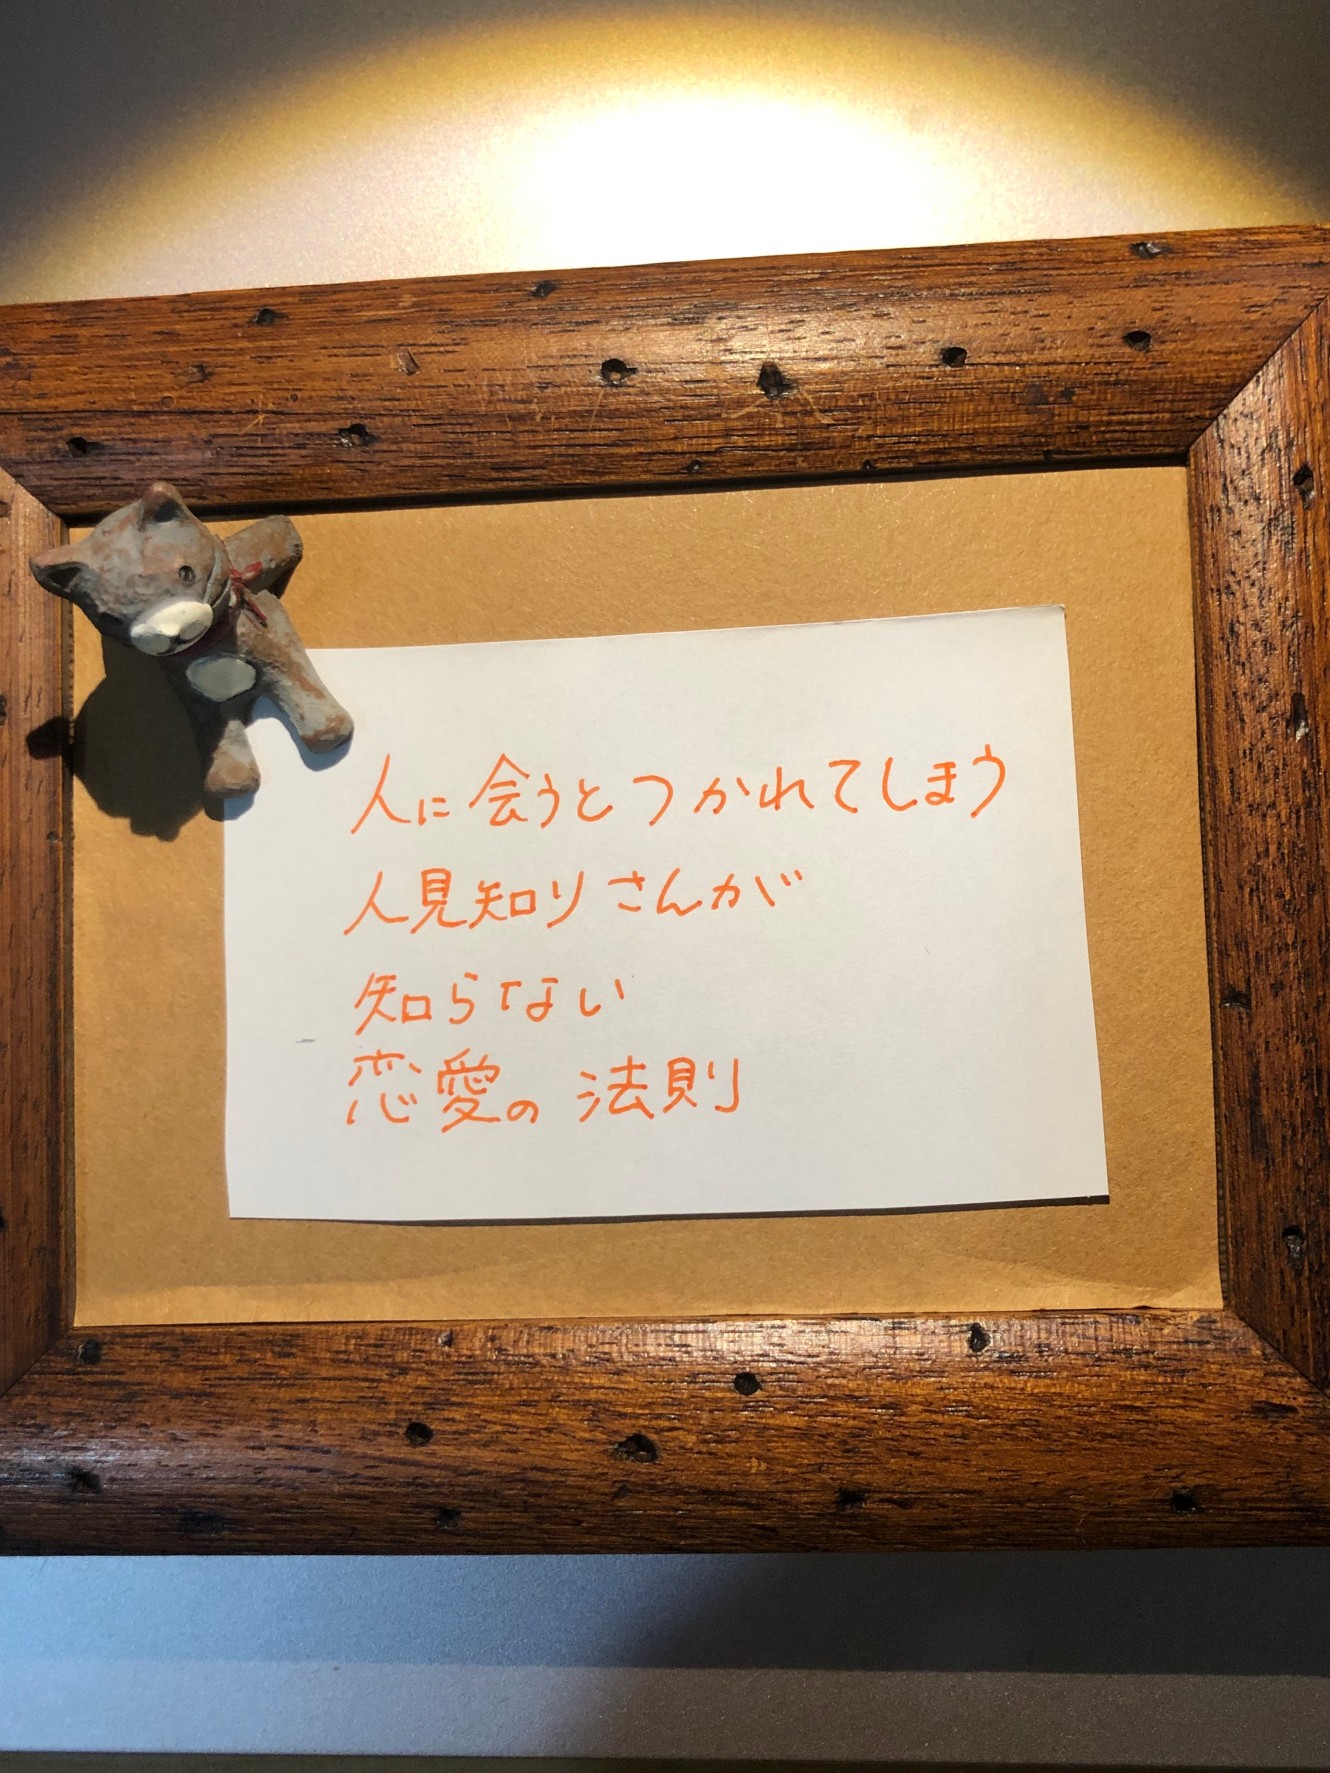 人に会うとつかれてしまう
人見知りさんが
知らない
恋愛の法則